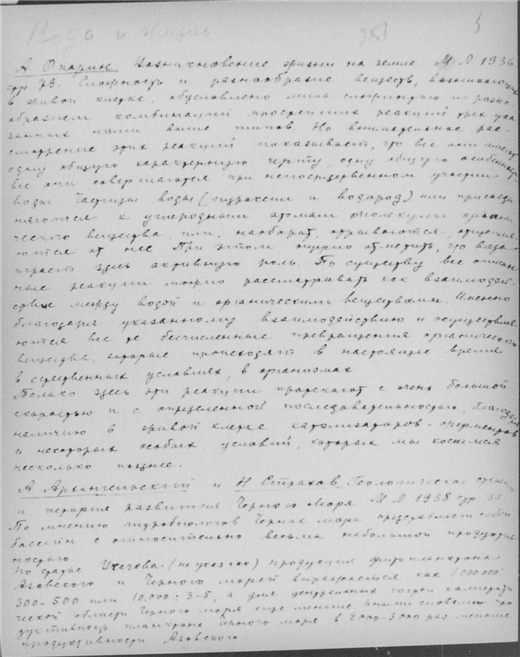 Вода и жизнь 351 5
А Опарин Возникновение жизни на земле М Л 1936
стр 73. Сложность и разнообразие веществ, возникающих
в живой клетке, обусловлено лишь сложностью и разно
образием комбинаций простейших реакций трех ука
занных нами выше типов. Но внимательное рас
смотрение этих реакций показывает, что все они имеют
одну общую характерную черту, одну общую особенность
все они совершаются при непосредственном участии
воды Частицы воды (гидроксил и водород) или присоеди
няются к углеродным атомам молекулы органи
ческого вещества, или, наоборот, отрываются, отщепля
ются от нее При этом нужно отметить, что вода
играет здесь активную роль. По существу все описан
ные реакции можно рассматривать как взаимодей
ствие между водой и органическими веществами. Именно
благодаря указанному взаимодействию и осуществля
ются все те бесчисленные превращения органического
вещества, которые происходят в настоящее время
в естественных условиях, в организмах
Только здесь эти реакции протекают с очень большой
скоростью и с определенной последовательностью, благодаря
наличию в живой клетке катализаторов-ферментов
и некоторых особых условий, которых мы коснемся
несколько позднее.
А Архангельский и Н Страхов Геологическое строение
и история развития Черного моря М Л 1938 стр 33
По мнению гидробиологов Черное море представляет собой
бассейн с относительно весьма небольшой продуктив
ностью.
По средне (не указах) продукция фитопланктона
Азовского и Черного морей выражается как
300-500 или 10,000 : 3-5, а для центральной
ческой области Черного моря еще меньше иными словами про
дуктивность планктона Черного моря в 2000-3000 раз меньше
продуктивности Азовского.